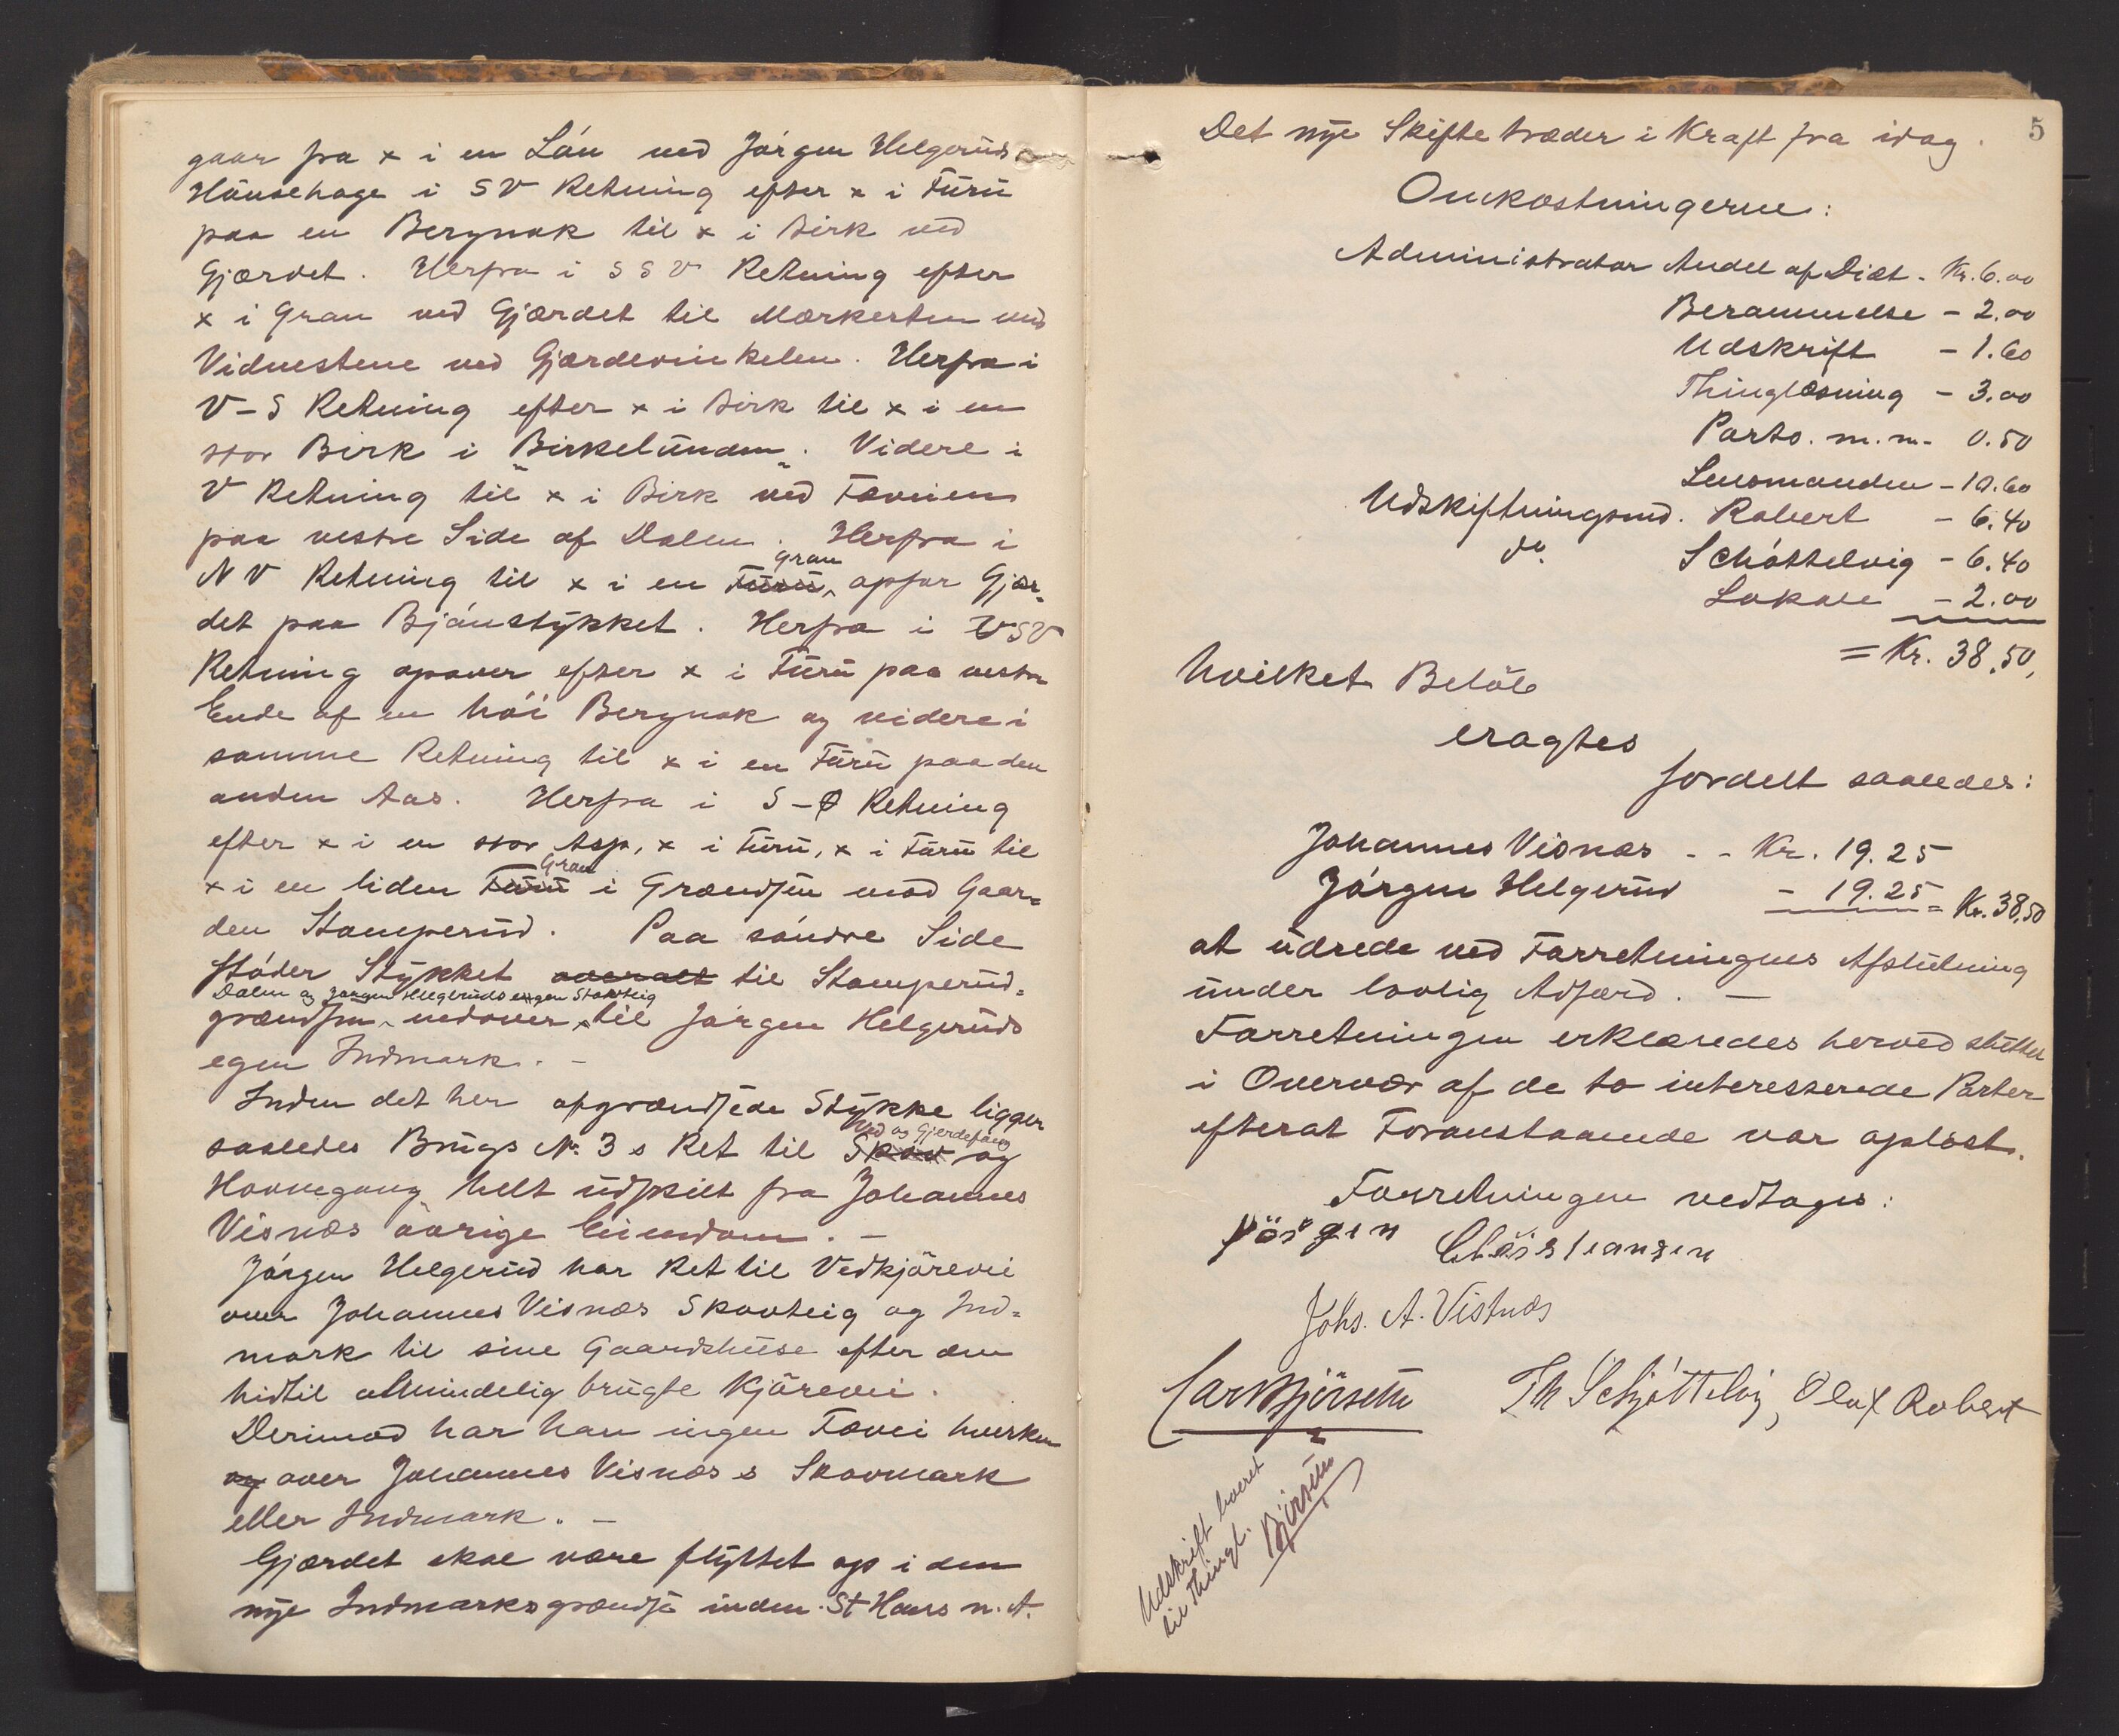 gaar fra × i en Lön ved Jörgen Helgeruds
Hönsehage i SV Retning efter × i Furu
paa en Bergnak til × i Birk ved
Gjærdet. Herfra i SSV Retning efter
× i Gran ved Gjærdet til Mærkesten med
Vidnestene ved Gjærdevinkelen. Herfra i
V-S Retning efter × i Birk til × i en
stor Birk i "Birkelunden". Videre i
V Retning til × i Birk ved Fæveien
paa vestre Side af Dalen. Herfra i
Gran
NV Retning til × i en Furu, opfor Gjær-
det paa Bjönstykket. Herfra i VSV
Retning opover efter × i Furu paa vestre
Ende af en höi Bergnak og videre i
samme Retning til × i en Furu paa den
anden Aas. Herfra i S-Ø Retning
efter × i en stor Asp, × i Furu, × i Furu til
Gran
× i en liden Furu i Grændsen mod Gaar-
den Stamperud. Paa söndre Side
stöder Stykket overalt til Stamperud-
Dalen og Jörgen Helgeruds egen Skovteig
grændsen nedover til Jörgen Helgeruds
egen Indmark. -
Inden det her afgrændsede Stykke ligger
Ved og Gjerdefang
saaledes Brugs No. 3 s Ret til Skov og
Havnegang helt udskilt fra Johannes
Visnæs övrige Eiendom. -
Jörgen Helgerud har Ret til Vedkjörevei
over Johannes Visnæs Skovteig og Ind-
mark til sine Gaardshuse efter den
hidtil almindelig brugte Kjörevei.
Derimod har han ingen Fævei hverken
og over Johannes Visnæs s Skovmark
eller Indmark. -
Gjærdet skal være flyttet op i den
nye Indmarksgrændse inden St Hans n. A.
5
Det nye Skifte træder i Kraft fra idag.
Omkostningerne:
Administrator Andel af Diæt - Kr. 6.00
Berammelse - 2.00
Udskrift - 1.60
Thinglæsning - 3.00
Porto. m. m. 0.50
Lensmanden - 10.60
Udskiftningsmd. Robert - 6.40
do. Schöttelvig - 6.40
Lokale - 2.00
= Kr. 38.50,
hvilket Belöb
eragtes
fordelt saaledes:
Johannes Visnæs - - Kr. 19.25
Jörgen Helgerud - 19.25 = Kr. 38,50
at udrede ved Forretningens Afslutning
under lovlig Adfærd. -
Forretningen erklæredes herved sluttet
i Overvær af de to interesserede Parter
efterat Foranstaaende var oplæst.
Forretningen vedtages:
Jörgen Christiansen
Johs. A. Vistnæs
Carl Bjørseth Th Schjöttelvig, Olaf Robert
Udskrift leveret
til Thingl.
Bjørseth